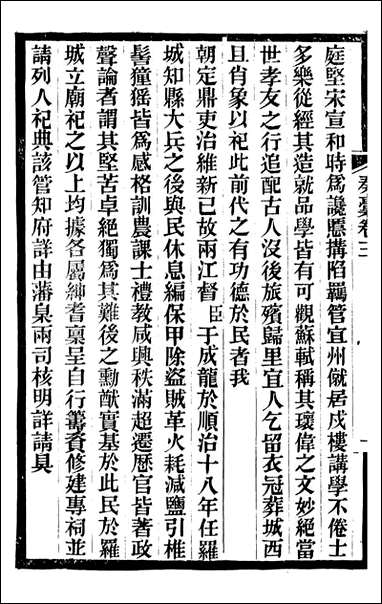 庭堅宋宣和時爲讒慝搆陷羈管宜州僦居戍樓講學不倦士
多樂從經其造就品學皆有可觀蘇軾稱其瓌偉之文妙絕當
世孝友之行追配古人沒後旅殯歸里宜人乞留衣冠葬城西
且肖象以祀此前代之有功德於民者我
朝定鼎吏治維新已故兩江督臣于成龍於順治十八年任羅
城知縣大兵之後與民休息編保甲除盜賊革火耗減鹽引椎
髻獞猺皆爲感格訓農課士禮教咸興秩滿超遷歷官皆著政
聲論者謂其堅苦卓絕獨爲其難後之勳猷實基於此民於羅
城立廟祀之以上均據各屬紳耆稟呈自行籌資修建專祠並
請列入祀典該管知府詳由藩臬兩司核明詳請具
奏稾卷三